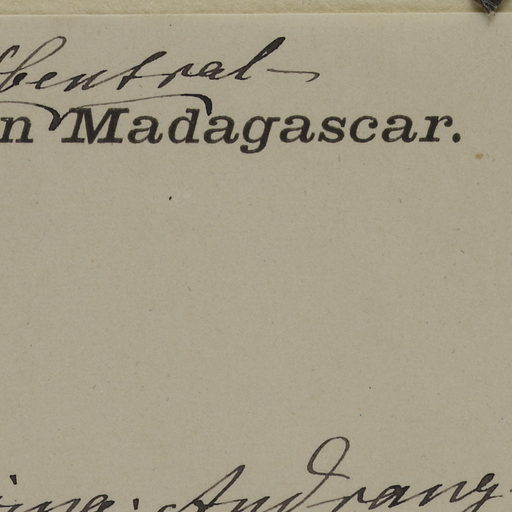 Central
n Madagascar.
Andrang